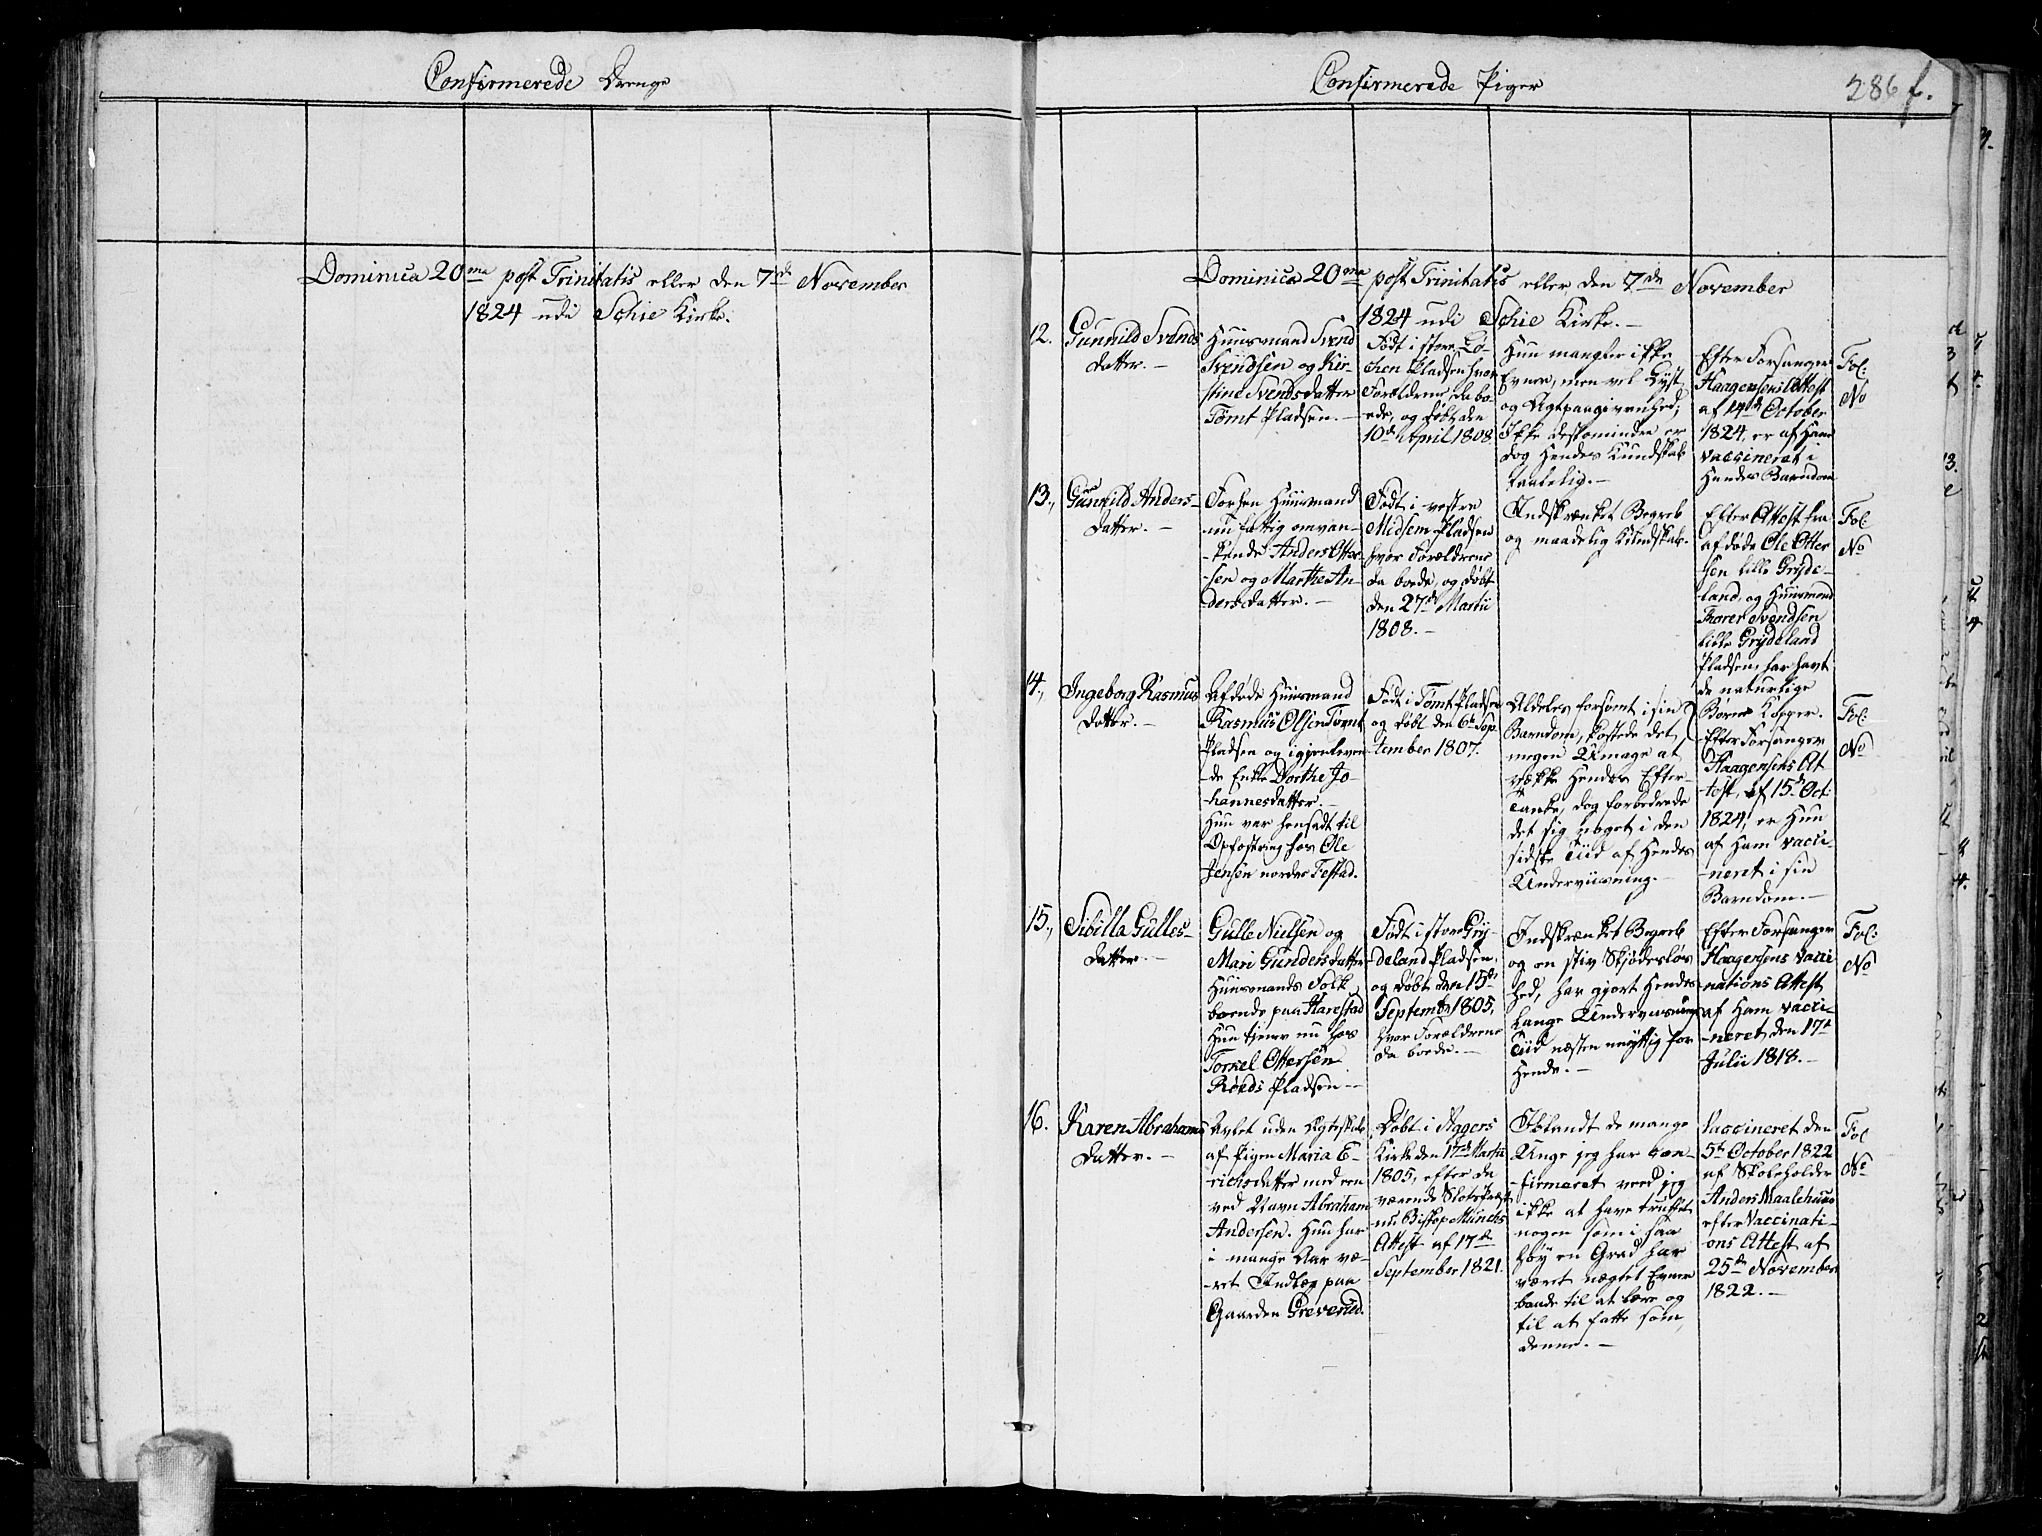 Confirmerede Drenge
Dominica 20ma post Trinitatis eller den 7de November
1824 udi Schie Kirke.
Confirmerede Piger
286 f.
Dominica 20ma post Trinitatis eller den 7de November
1824 udi Schie Kirke. -
12.
Gunnild Svends
datter. -
Huusmand Svend
Svendsen og Kir-
stine Svendsdatter
Tømt Pladsen. -
Født i store Lø-
ken Pladsen hvor
Forældrene da bo-
ede, og døbt den
10de April 1808.
Hun mangler ikke
Evner, men vel Lyst
og Agtpaagivenhed;
Ikke destomindre er
dog hendes Kundskab
taalelig. -
Efter Forsanger
Haagensens Attest
af 14de October
1824, er af Ham
vaccineret i
Hendes Barndom
Fol:
No
13.,
Gunnild Anders-
datter. -
Forhen Huusmand
nu fattig omvan-
kende Anders Otter-
sen og Marthe An-
dersdatter. -
Født i vestre
Midsem Pladsen
hvor Forældrene
da boede, og døbt
den 27de Martii
1808. -
Indskrænket Begreb
og maadelig Kundskab.
Efter Attest fra
afdøde Ole Otter
sen lille Gryde-
land, og Huusmand
Thorer Svendsen
lille Grydeland
Pladsen, har havt
de naturlige
Børne Kopper.
Fol:
No
14.,
Ingeborg Rasmus
datter. -
Afdøde Huusmand
Rasmus Olsen Tømt
Pladsen og igjenleven
de Enke Dorthe Jo-
hannesdatter. -
Hun var hensadt til
Opfostring hos Ole
Jensen nordre Festad.
Født i Tømt Pladsen
og døbt den 6te Sep
tember 1807.
Aldeles forsømt i sin
Barndom, kostede det
megen Umage at
vække Hendes Efter-
tanke, dog forbedrede
det sig noget i den
sidste Tiid af Hendes
Underviisning. -
Efter Forsanger
Haagensens At
test, af 15de Oct:
1824, er Hun
af Ham vacci-
neret i sin
Barndom. -
Fol:
No
15.,
Sibilla Gulles-
datter. -
Gulle Nielsen og
Mari Gundersdatter
Huusmands Folk
boende paa Harestad
Hun tjener nu hos
Torkel Ottersen
Røeds Pladsen -
Født i store Gry-
deland Pladsen,
og døbt den 15de
Septembr 1805,
hvor Forældrene
da boede. -
Indskrænket Begreb
og en stiv Skjødesløs
hed, har gjort Hendes
lange Underviisnings
Tiid næsten unyttig for
Hende. -
Efter Forsanger
Haagensens Vacci
nations Attest
af Ham vacci-
neret den 17de
Julii 1818. -
Fol:
No
16.
Karen Abrahams
datter. -
Avlet uden Ægteskab
af Pigen Maria E-
richsdatter med een
ved Navn Abraham
Andersen. Hun har
i mange Aar væ-
ret Indlæg paa
Gaarden Greverud.
Døbt i Aggers
Kirke den 17de Martii
1805, efter da
værende Slotspræst
nu Biskop Munchs
Attest af 17de
September 1821.
Iblandt de mange
Unge jeg har con-
firmeret veed jeg
ikke at have truffet
nogen som i saa
høy en Grad har
været nægtet Evner
baade til at lære og
til at fatte som
denne. -
Vaccineret den
5te October 1822
af Skoleholder
Anders Maalehuus
efter Vaccinati-
ons Attest af
25de November
1822. -
Fol
No